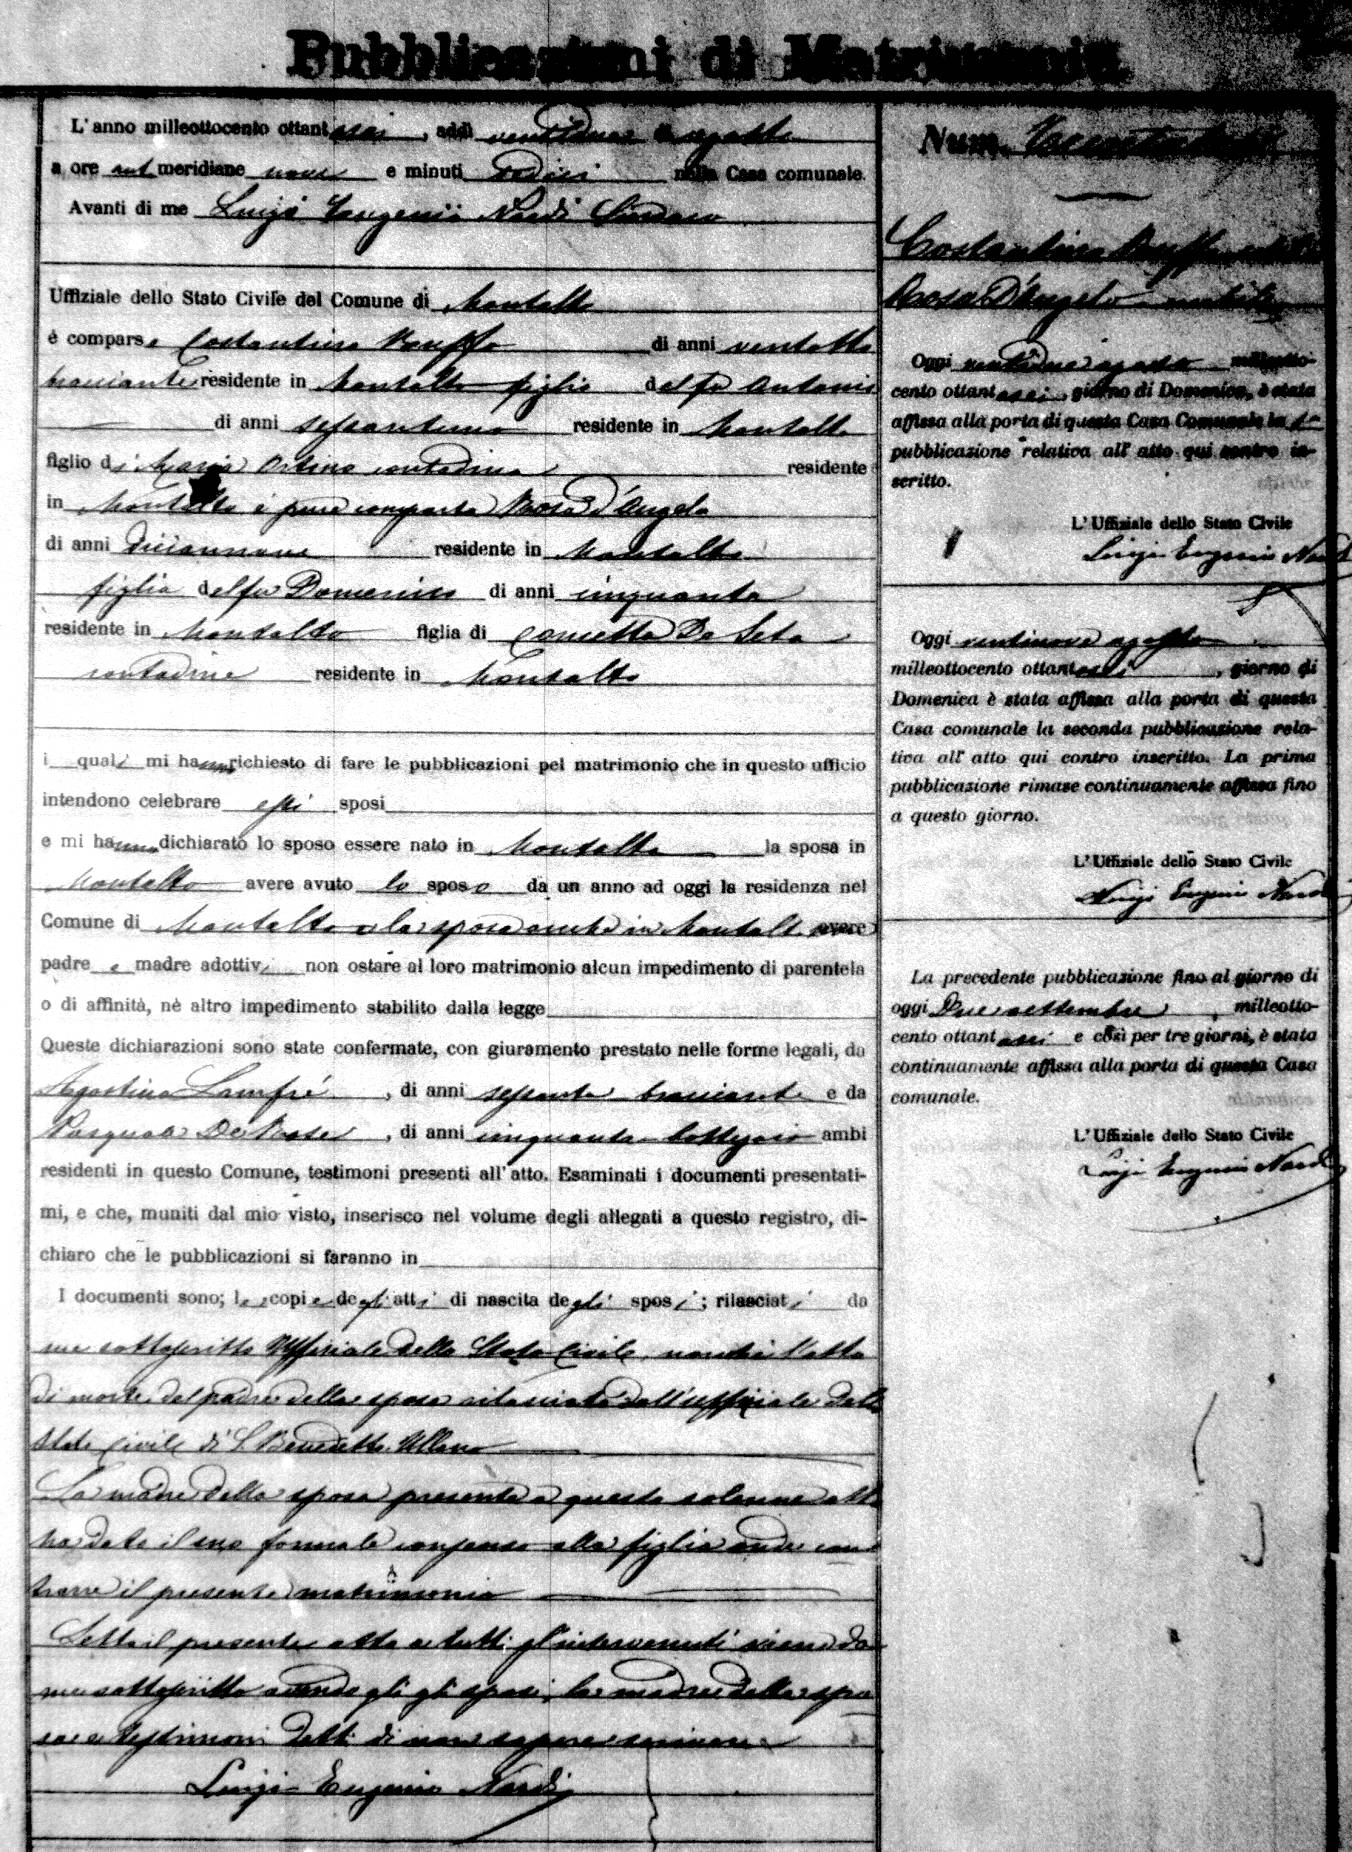 Pubblicazioni di Matrimonio
L'anno milleottocento ottantasei, addì ventidue agosto
a ore ant meridiane nove e minuti dodici nella Casa comunale.
Avanti di me Luigi Eugenio Nardi Sindaco
Uffiziale dello Stato Civile del Comune di Montalto
è comparso Costantino Ruffo di anni ventotto
bracciante residente in Montalto figlio del fu Antonio
di anni residente in Montalto
figlio di Maria contadina residente
in Montalto è pure comparsa Rosa d'Angelo
di anni diciannove residente in Montalto
figlia del fu Domenico di anni cinquanta
residente in Montalto figlia di Concetta De Seta
contadine residente in Montalto
i quali mi hanno richiesto di fare le pubblicazioni pel matrimonio che in questo ufficio
intendono celebrare essi sposi
e mi hanno dichiarato lo sposo essere nato in Montalto la sposa in
Montalto avere avuto lo sposo da un anno ad oggi la residenza nel
Comune di Montalto e la sposa anche in Montalto avere
padre e madre adottivi non ostare al loro matrimonio alcun impedimento di parentela
o di affinità, nè altro impedimento stabilito dalla legge
Queste dichiarazioni sono state confermate, con giuramento prestato nelle forme legali, da
Agostino Lanfré, di anni sessanta bracciante e da
Pasquale De Rose, di anni cinquanta bottegaio ambi
residenti in questo Comune, testimoni presenti all'atto. Esaminati i documenti presentati-
mi, e che, muniti dal mio visto, inserisco nel volume degli allegati a questo registro, di-
chiaro che le pubblicazioni si faranno in
I documenti sono; le copie degli atti di nascita degli sposi; rilasciati da
me sottoscritto Uffiziale dello Stato Civile, nonchè l'atto
di morte del padre della sposa rilasciato dall'uffiziale dello
Stato Civile di S. Benedetto Ullano
La madre della sposa presente a questo solenne atto
ha dato il suo formale consenso alla figlia onde con
trarre il presente matrimonio
Letto il presente atto a tutti gl'intervenuti viene da
me sottoscritto avendo gli gli sposi, la madre della spo
sa e testimoni detti di non sapere scrivere
Luigi Eugenio Nardi
Num.
Costantino Ruffo
Rosa D'Angelo nubile
Oggi ventidue agosto milleotto-
cento ottantasei, giorno di Domenica, è stata
affissa alla porta di questa Casa Comunale la 1a
pubblicazione relativa all'atto qui contro in-
scritto.
L'Uffiziale dello Stato Civile
Luigi Eugenio Nardi
Oggi ventinove agosto
milleottocento ottantasei, giorno di
Domenica è stata affissa alla porta di questa
Casa comunale la seconda pubblicazione rela-
tiva all'atto qui contro inscritto. La prima
pubblicazione rimase continuamente affissa fino
a questo giorno.
L'Uffiziale dello Stato Civile
Luigi Eugenio Nardi
La precedente pubblicazione fino al giorno di
oggi Due settembre milleotto-
cento ottantasei e così per tre giorni, è stata
continuamente affissa alla porta di questa Casa
comunale.
L'Uffiziale dello Stato Civile
Luigi Eugenio Nardi